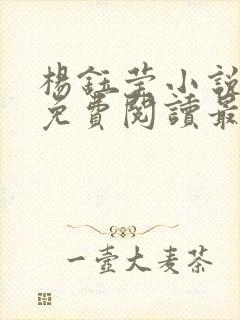 楊鈺瑩小說
免費閱讀最
一壺大麦茶